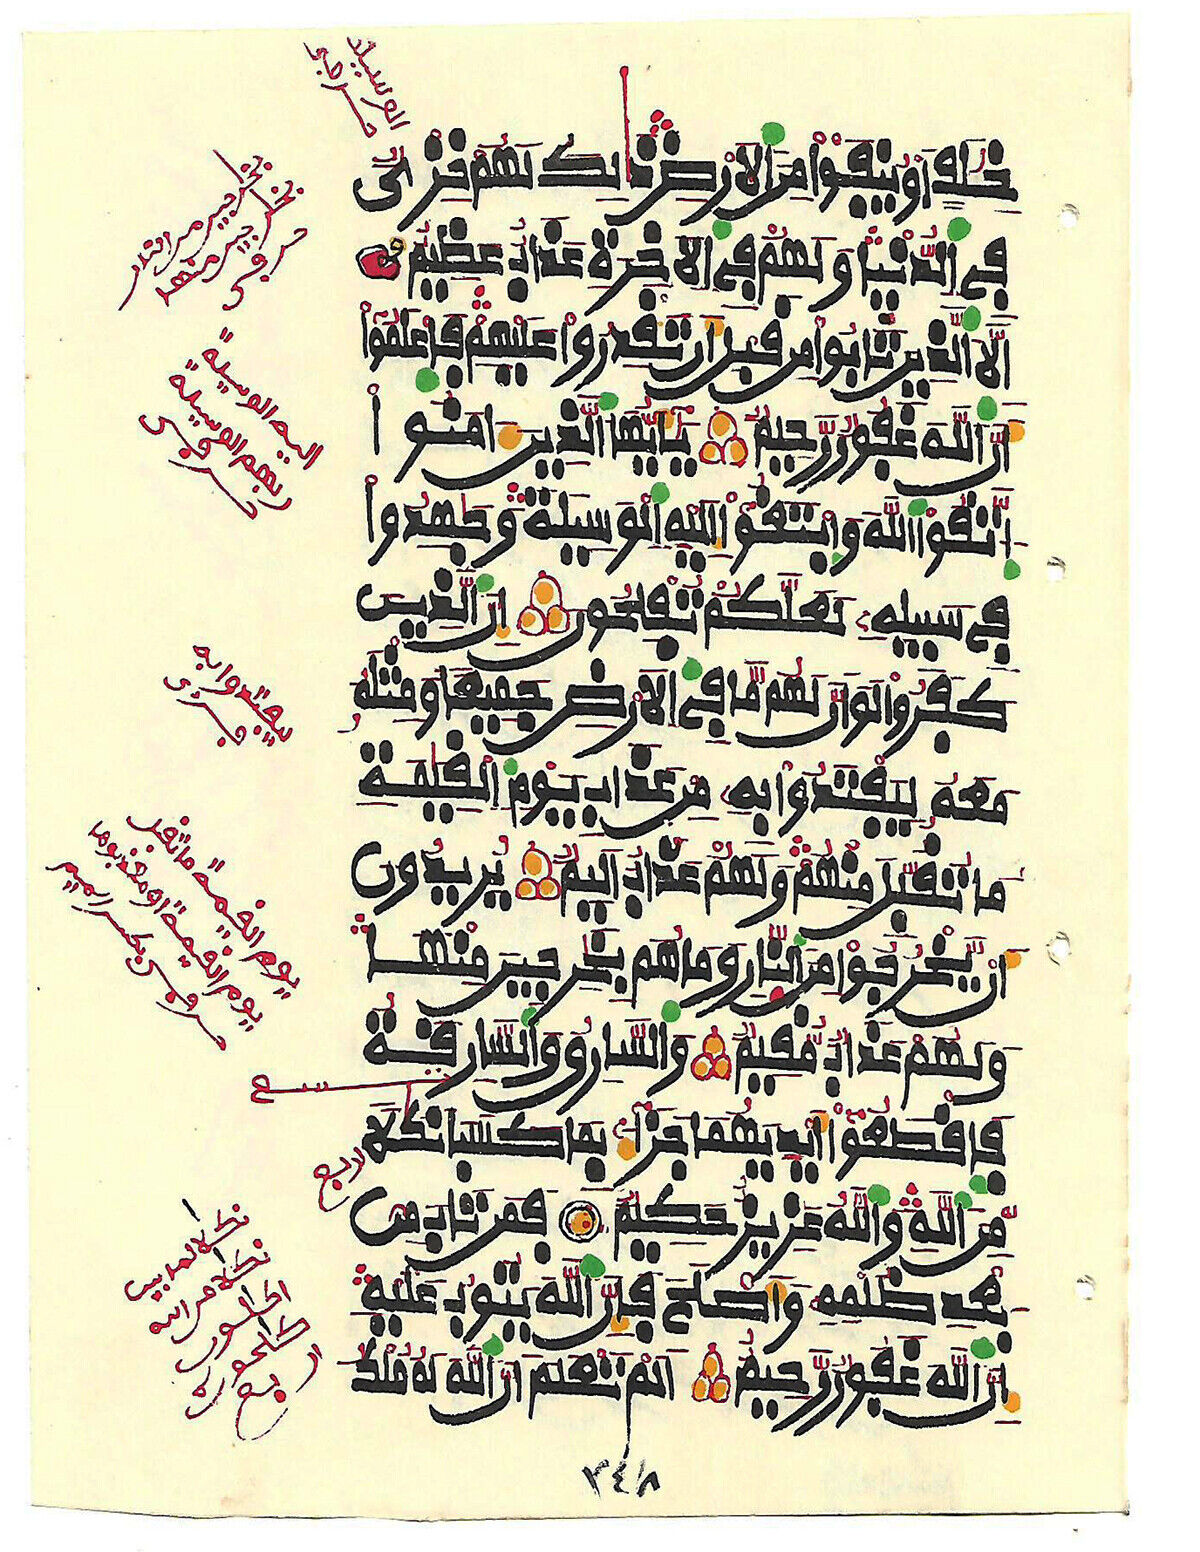 خلف او ينفوا من الارض ذالك لهم خزى
في الدنيا ولهم في الاخرة عذاب عظيم
الا الذين تابوا من قبل ان تقدروا عليهم فاعلموا
ان الله غفور رحيم يايها الذين امنوا
اتقوا الله وابتغوا اليه الوسيلة وجهدوا
في سبيله لعلكم تفلحون ان الذين
كفروا لو ان لهم ما في الارض جميعا ومثله
معه ليفتدوا به من عذاب يوم القيمة
ما تقبل منهم ولهم عذاب اليم يريدون
ان يخرجوا من النار وما هم بخرجين منها
ولهم عذاب مقيم والسارق والسارقة
فاقطعوا ايديهما جزاء بما كسبا نكلا
من الله والله عزيز حكيم فمن تاب من
بعد ظلمه واصلح فان الله يتوب عليه
ان الله غفور رحيم الم تعلم ان الله له ملك
اليه الوسيلة
ربهم الوسيلة
ليفتدوا به
يوم القيمة ما تقبل
ربع
٣٤٨